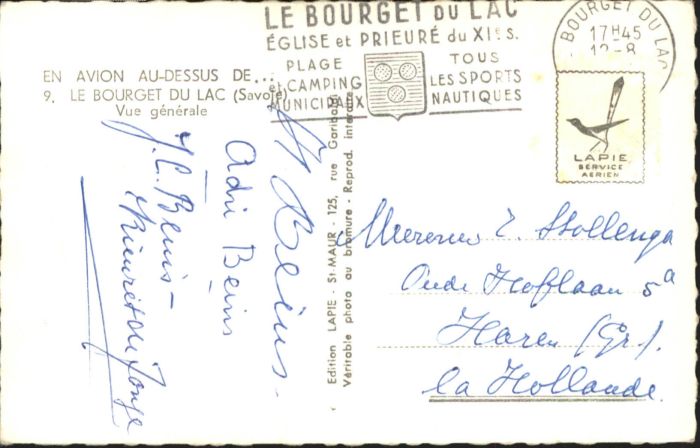 LE BOURGET DU LAC
ÉGLISE et PRIEURÉ du XIe s.
PLAGE
et CAMPING
MUNICIPAUX
TOUS
LES SPORTS
NAUTIQUES
BOURGET DU LAC
17H45
12-8
EN AVION AU-DESSUS DE...
9. LE BOURGET DU LAC (Savoie)
Vue générale
LAPIE
SERVICE
AERIEN
Edition LAPIE - St-MAUR - 125, rue Garibaldi
Véritable photo au bromure - Reprod. interdite
Beins.
Adri Beins
J.C. Beins-
Mevrouw Stollenga
Oude Hoflaan 5a
Haren (Gr.)
la Hollande